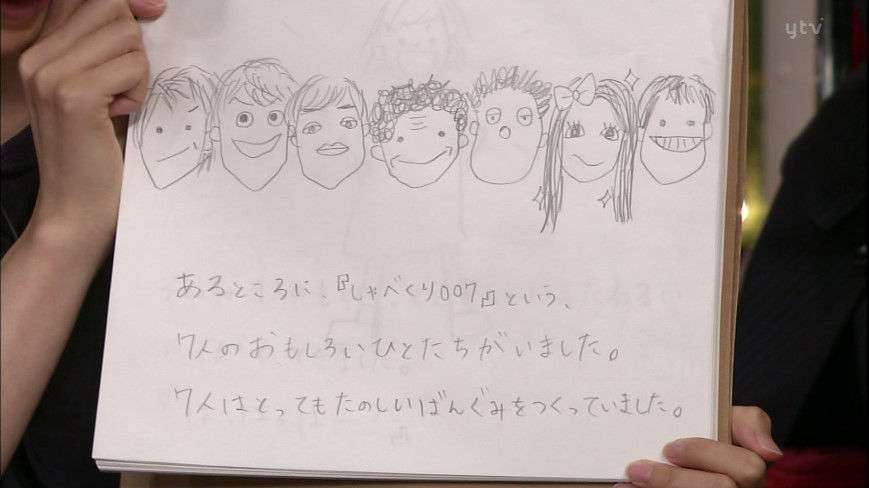 ytv
あるところに、『しゃべくり007』という、
7人のおもしろいひとたちがいました。
7人はとってもたのしいばんぐみをつくっていました。